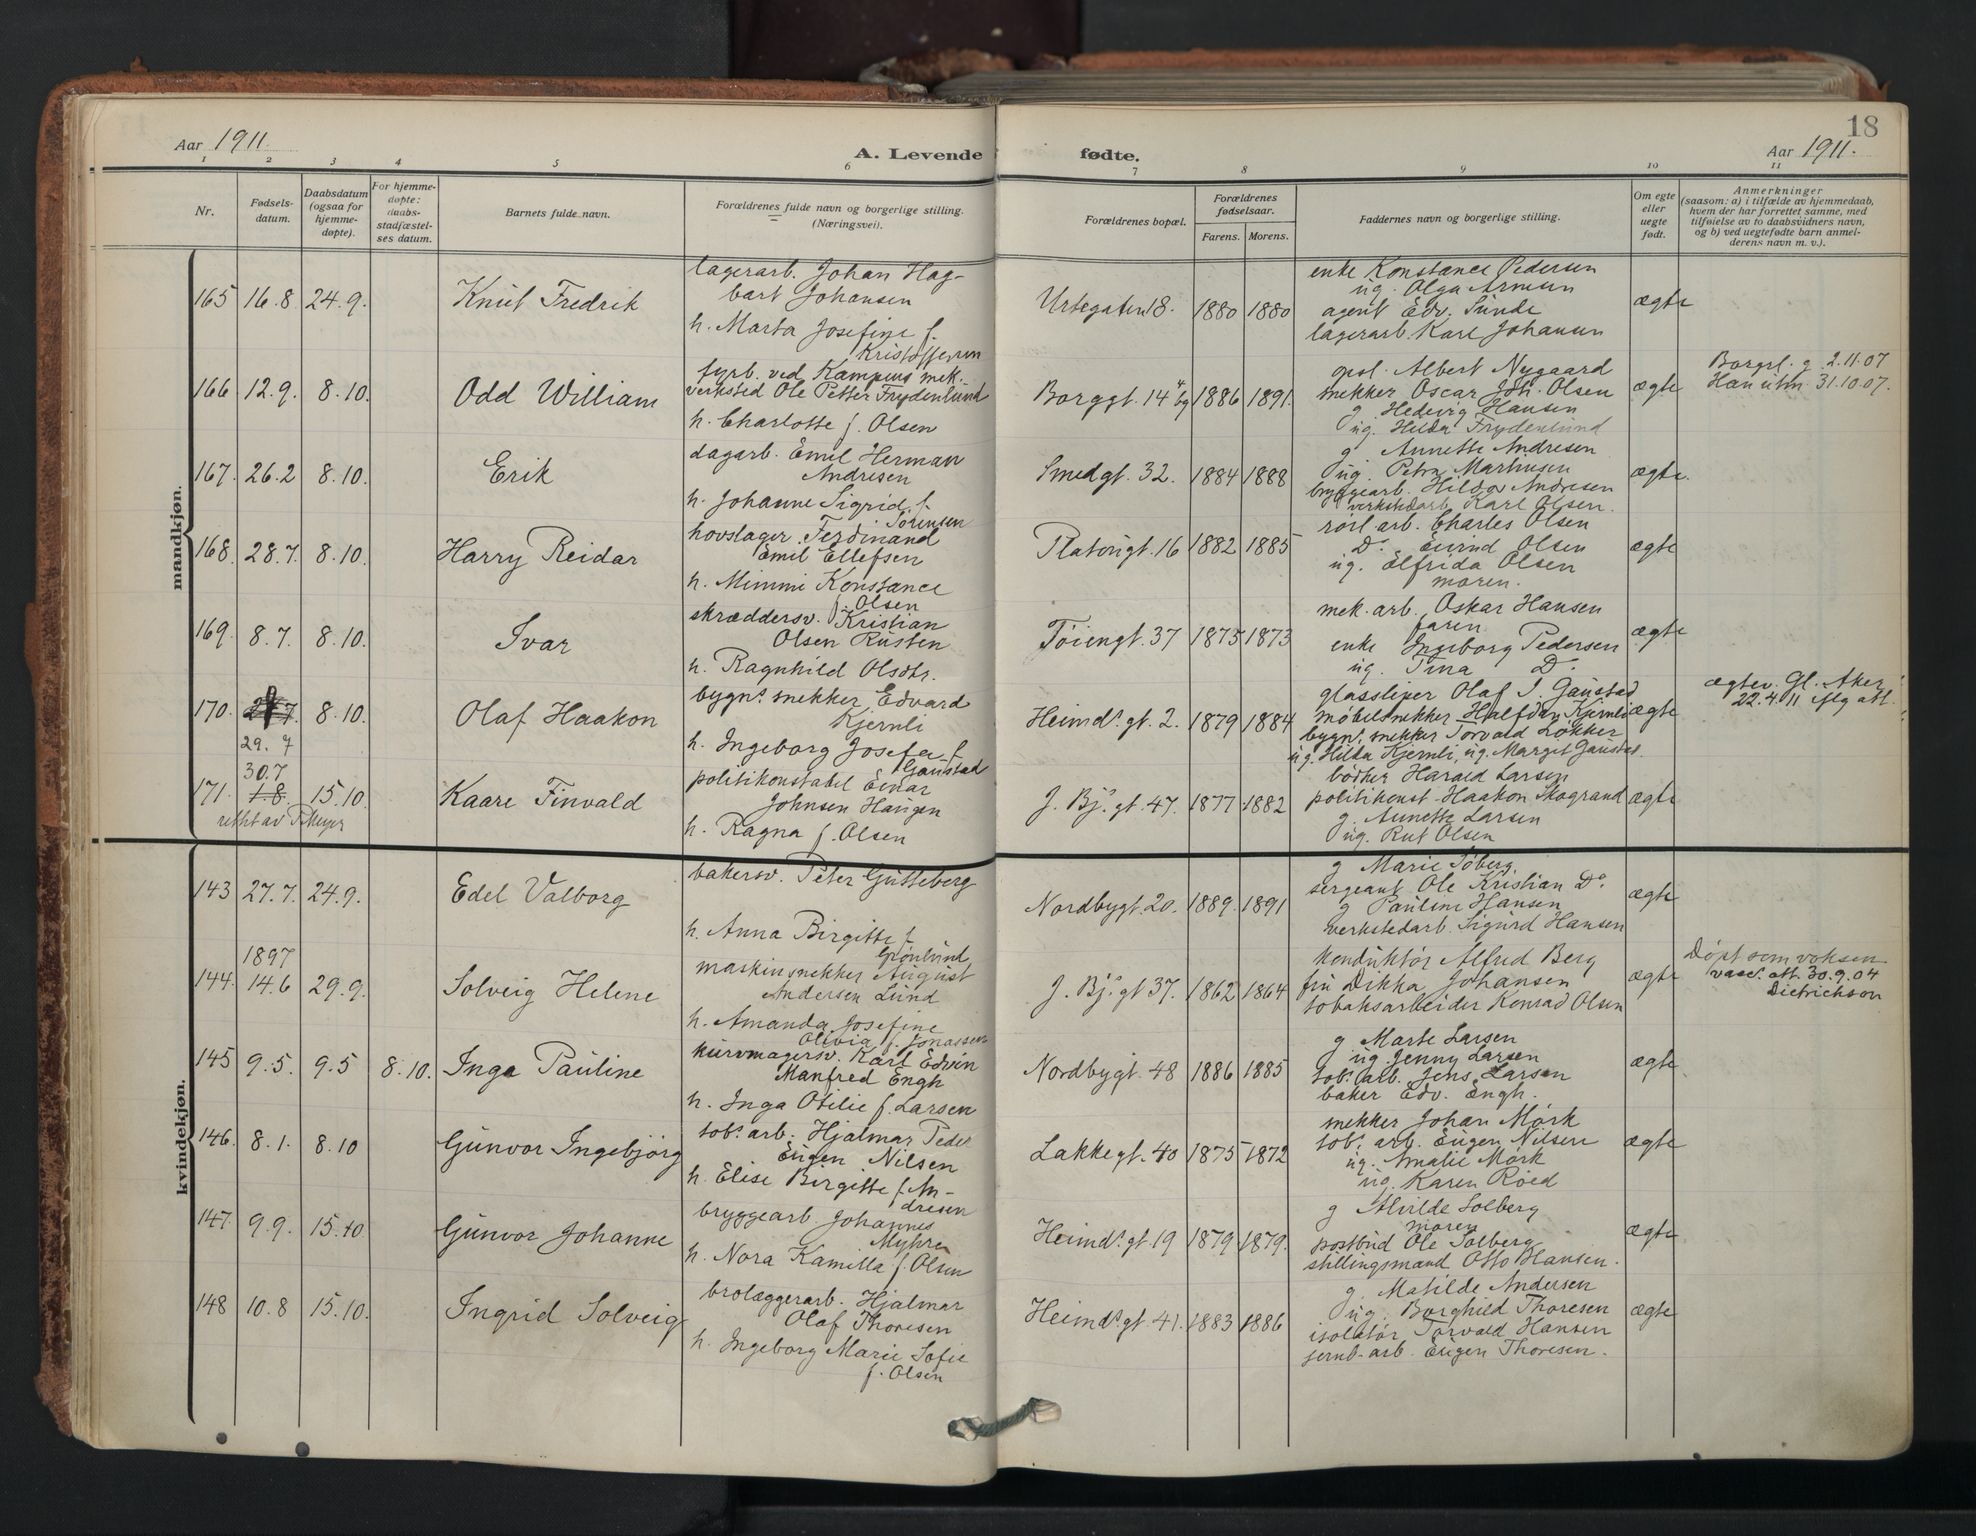 18
Aar 1911.
A. Levende fødte.
Aar 1911.
1 2 3 4 5 6 7 8 9 10 11
Nr.
Fødsels-
datum.
Daabsdatum
(ogsaa for
hjemme-
døpte).
For hjemme-
døpte:
daabs-
stadfæstel-
ses datum.
Barnets fulde navn.
Forældrenes fulde navn og borgerlige stilling.
(Næringsvei).
Forældrenes bopæl.
Forældrenes
fødselsaar.
Farens. Morens.
Faddernes navn og borgerlige stilling.
Om egte
eller
uegte
født.
Anmerkninger
(saasom: a) i tilfælde av hjemmedaab,
hvem der har forrettet samme, med
tilføielse av to daabsvidners navn,
og b) ved uegtefødte barn anmel-
derens navn m. v.).
mandkjøn.
165 16.8. 24.9. Knut Fredrik
lagerarb. Johan Hag-
bart Johansen
h. Marta Josefine f.
Kristoffersen
Urtegaten 18. 1880 1880
enke Konstance Pedersen
ug. Olga Arnesen
agent Edv. Sunde
lagerarb. Karl Johansen
ægte
166 12.9. 8.10. Odd William
fyrb. ved Kampens mek.
verksted Ole Petter Frydenlund
h. Charlotte f. Olsen
Borggt. 14 1886 1891.
Albert Nygaard
snekker Oscar Joh. Olsen
g. Hedevig Hansen
ug. Hilda Frydenlund
ægte
Borgl. g. 2.11.07
Han utm. 31.10.07.
167. 26.2 8.10. Erik
dagarb. Emil Herman
Andresen
h. Johanne Sigrid f.
Sørensen
Smedgt. 32. 1884 1888
g Annette Andresen
ug. Petra Martinsen
bryggearb. Hildor Andresen
verkstedarb. Karl Olsen.
ægte.
168. 28.7. 8.10. Harry Reidar
hovslager Ferdinand
Emil Ellefsen
h. Mimmi Konstance
f. Olsen
Platousgt. 16 1882 1885
rørl. arb. Charles Olsen
Do Eivind Olsen
ug. Elfrida Olsen
moren.
ægte
169. 8.7. 8.10. Ivar
skræddersv. Kristian
Olsen Rusten
h. Ragnhild Olsdtr.
Tøiengt. 37 1875 1873
mek. arb. Oskar Hansen
faren
enke Ingeborg Pedersen
ug. Tina Do
ægte
170. 8.10. Olaf Haakon
29.7
bygns. snekker Edvard
Kjernli
h. Ingeborg Josefa f.
Gaustad
Heimds.gt. 2. 1879 1884
glassliper Olaf J. Gaustad
møbelsnekker Halfdan Kjernli
bygns. snekker Torvald Løkker
ug. Hilda Kjernli, ug. Margit Gaustad.
ægte
ægtev. Gl. Aker
22.4.11 iflg att.
30.7
171. 1.8. 15.10. Kaare Finvald
rettet av
politikonstabel Einar
Johnsen Haugen
h. Ragna f. Olsen
J. Bj.s gt. 47. 1877 1882
bødker Harald Larsen
politikonst. Haakon Skogrand
g. Annette Larsen
ug. Rut Olsen
ægte
kvindekjøn.
143 27.7. 24.9. Edel Valborg
bakersv. Peter Gutteberg
h. Anna Birgitte f.
Grønlund
Nordbygt. 20. 1889. 1891
g Marie Søberg
sergeant Ole Kristian Do.
g Pauline Hansen
verkstedarb. Sigurd Hansen
ægte
1897
144. 14.6 29.9. Solveig Helene
maskinsnekker August
Andersen Lund
h. Amanda Josefine
Olivia f. Jonassen
J. Bj.s gt 37. 1862 1864
konduktør Alfred Berg
fru Dikka Johansen
tobaksarbeider Konrad Olsen
ægte
Døpt som voksen
vacc. att. 30.9.04
Dietrichson
145 9.5. 9.5 8.10. Inga Pauline
kurvmagersv. Karl Edvin
Manfred Engh
h. Inga Otilie f. Larsen
Nordbygt. 48 1886 1885
g. Marte Larsen
ug. Jenny Larsen
tobs. arb. Jens Larsen
baker Edv. Engh.
ægte
146. 8.1. 8.10 Gunvor Ingebjörg
tobs. arb. Hjalmar Peder
Eugen Nilsen
h. Elise Birgitte f. An-
dresen
Lakkegt. 40 1875 1872
snekker Johan Mørk
tobs. arb. Eugen Nilsen
ug. Amalie Mørk
ug. Karen Røed
ægte
147. 9.9. 15.10 Gunvor Johanne
bryggearb. Johannes
Myhre
h. Nora Kamilla f. Olsen
Heimds.gt. 19 1879 1879.
g Alvilde Solberg
moren
postbud Ole Solberg
stillingsmand Otto Hansen.
ægte
148 10.8 15.10. Ingrid Solveig
brolæggerarb. Hjalmar
Olaf Thoresen
h. Ingeborg Marie Sofie
f. Olsen
Heimds.gt. 41. 1883 1886
g. Matilde Andersen
ug. Borghild Thoresen
isolatør Torvald Hansen
jernb. arb. Eugen Thoresen.
ægte